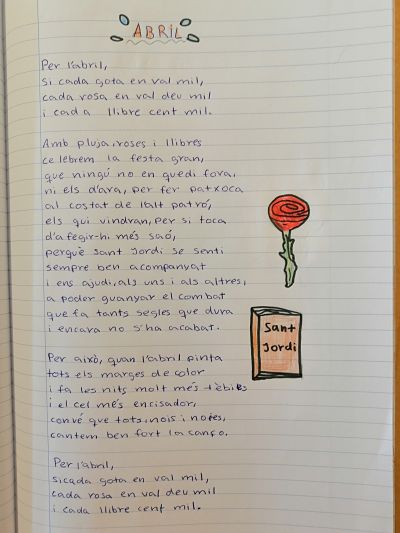 ABRIL
Per l'abril,
si cada gota en val mil,
cada rosa en val deu mil
i cada llibre cent mil.
Amb pluja, roses i llibres
celebrem la festa gran,
que ningú no en quedi fora,
ni els d'ara, per fer patxoca
al costat de l'alt patró,
els qui vindran, per si toca
d'afegir-hi més saó,
perquè Sant Jordi se senti
sempre ben acompanyat
i ens ajudi, als uns i als altres,
a poder guanyar el combat
que fa tants segles que dura
i encara no s'ha acabat.
Sant
Jordi
Per això, quan l'abril pinta
tots els marges de color
i fa les nits molt més tèbies
i el cel més encisador,
convé que tots, nois i noies,
cantem ben fort la canço.
Per l'abril,
si cada gota en val mil,
cada rosa en val deu mil
i cada llibre cent mil.